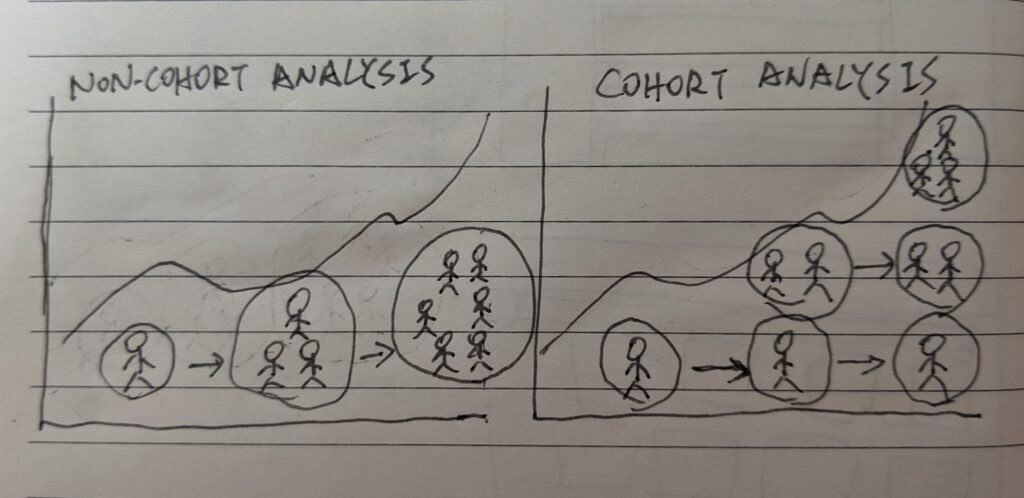 NON-COHORT ANALYSIS
COHORT ANALYSIS